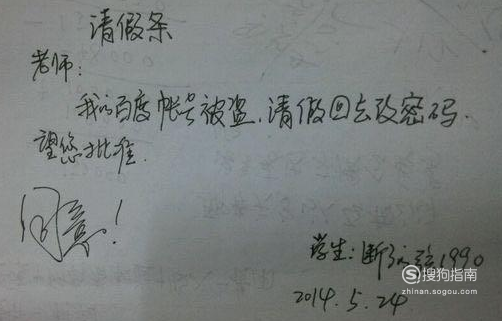 请假条
老师:
我的百度帐号被盗,请假回去改密码.
望您批准.
同意!
学生:断1990
2014.5.24
搜狗指南
zhinan.sogou.com